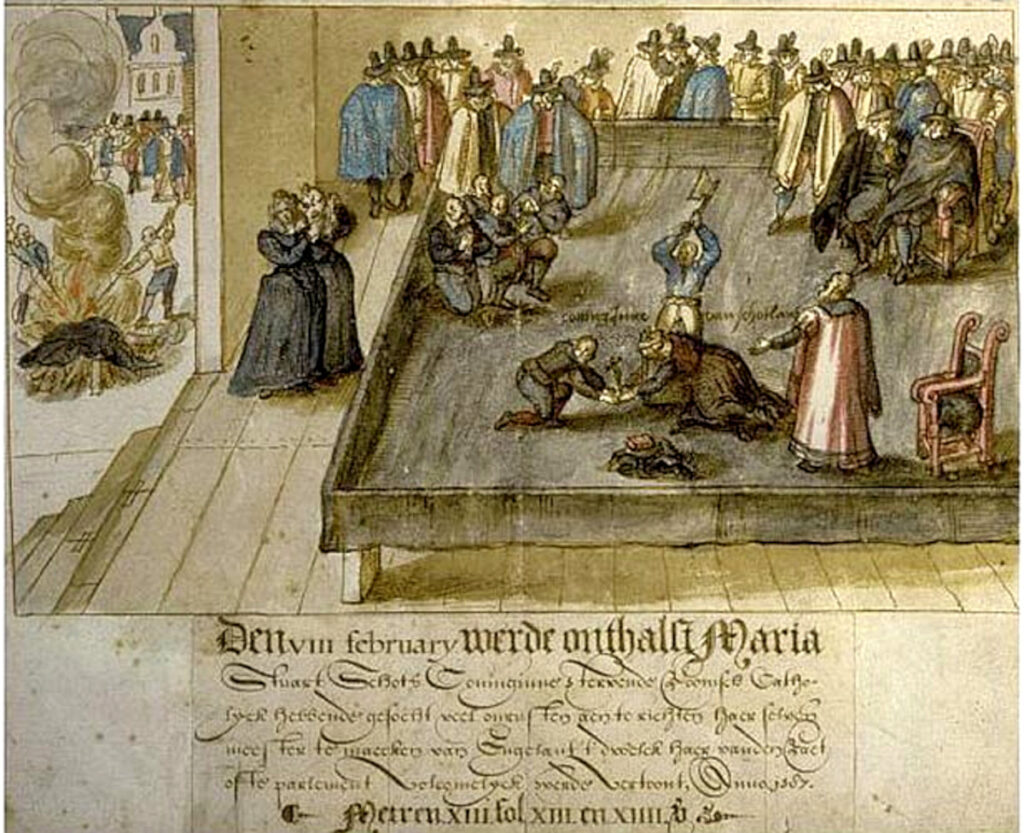 Coninginne van Schotlandt
Den VIII february werde onthalst Maria
Stuart Schots Coninginne stervende Roomsch Catho-
lyck hebbende gesocht veel onrusten aen te richten haer selven
meester te maecken van Engelant t' dwelck haer vanden Raet
ofte parlement Volcomelyck werde Vertoont, Anno 1587.
Meteren XIII. fol XIII en XIIII. b